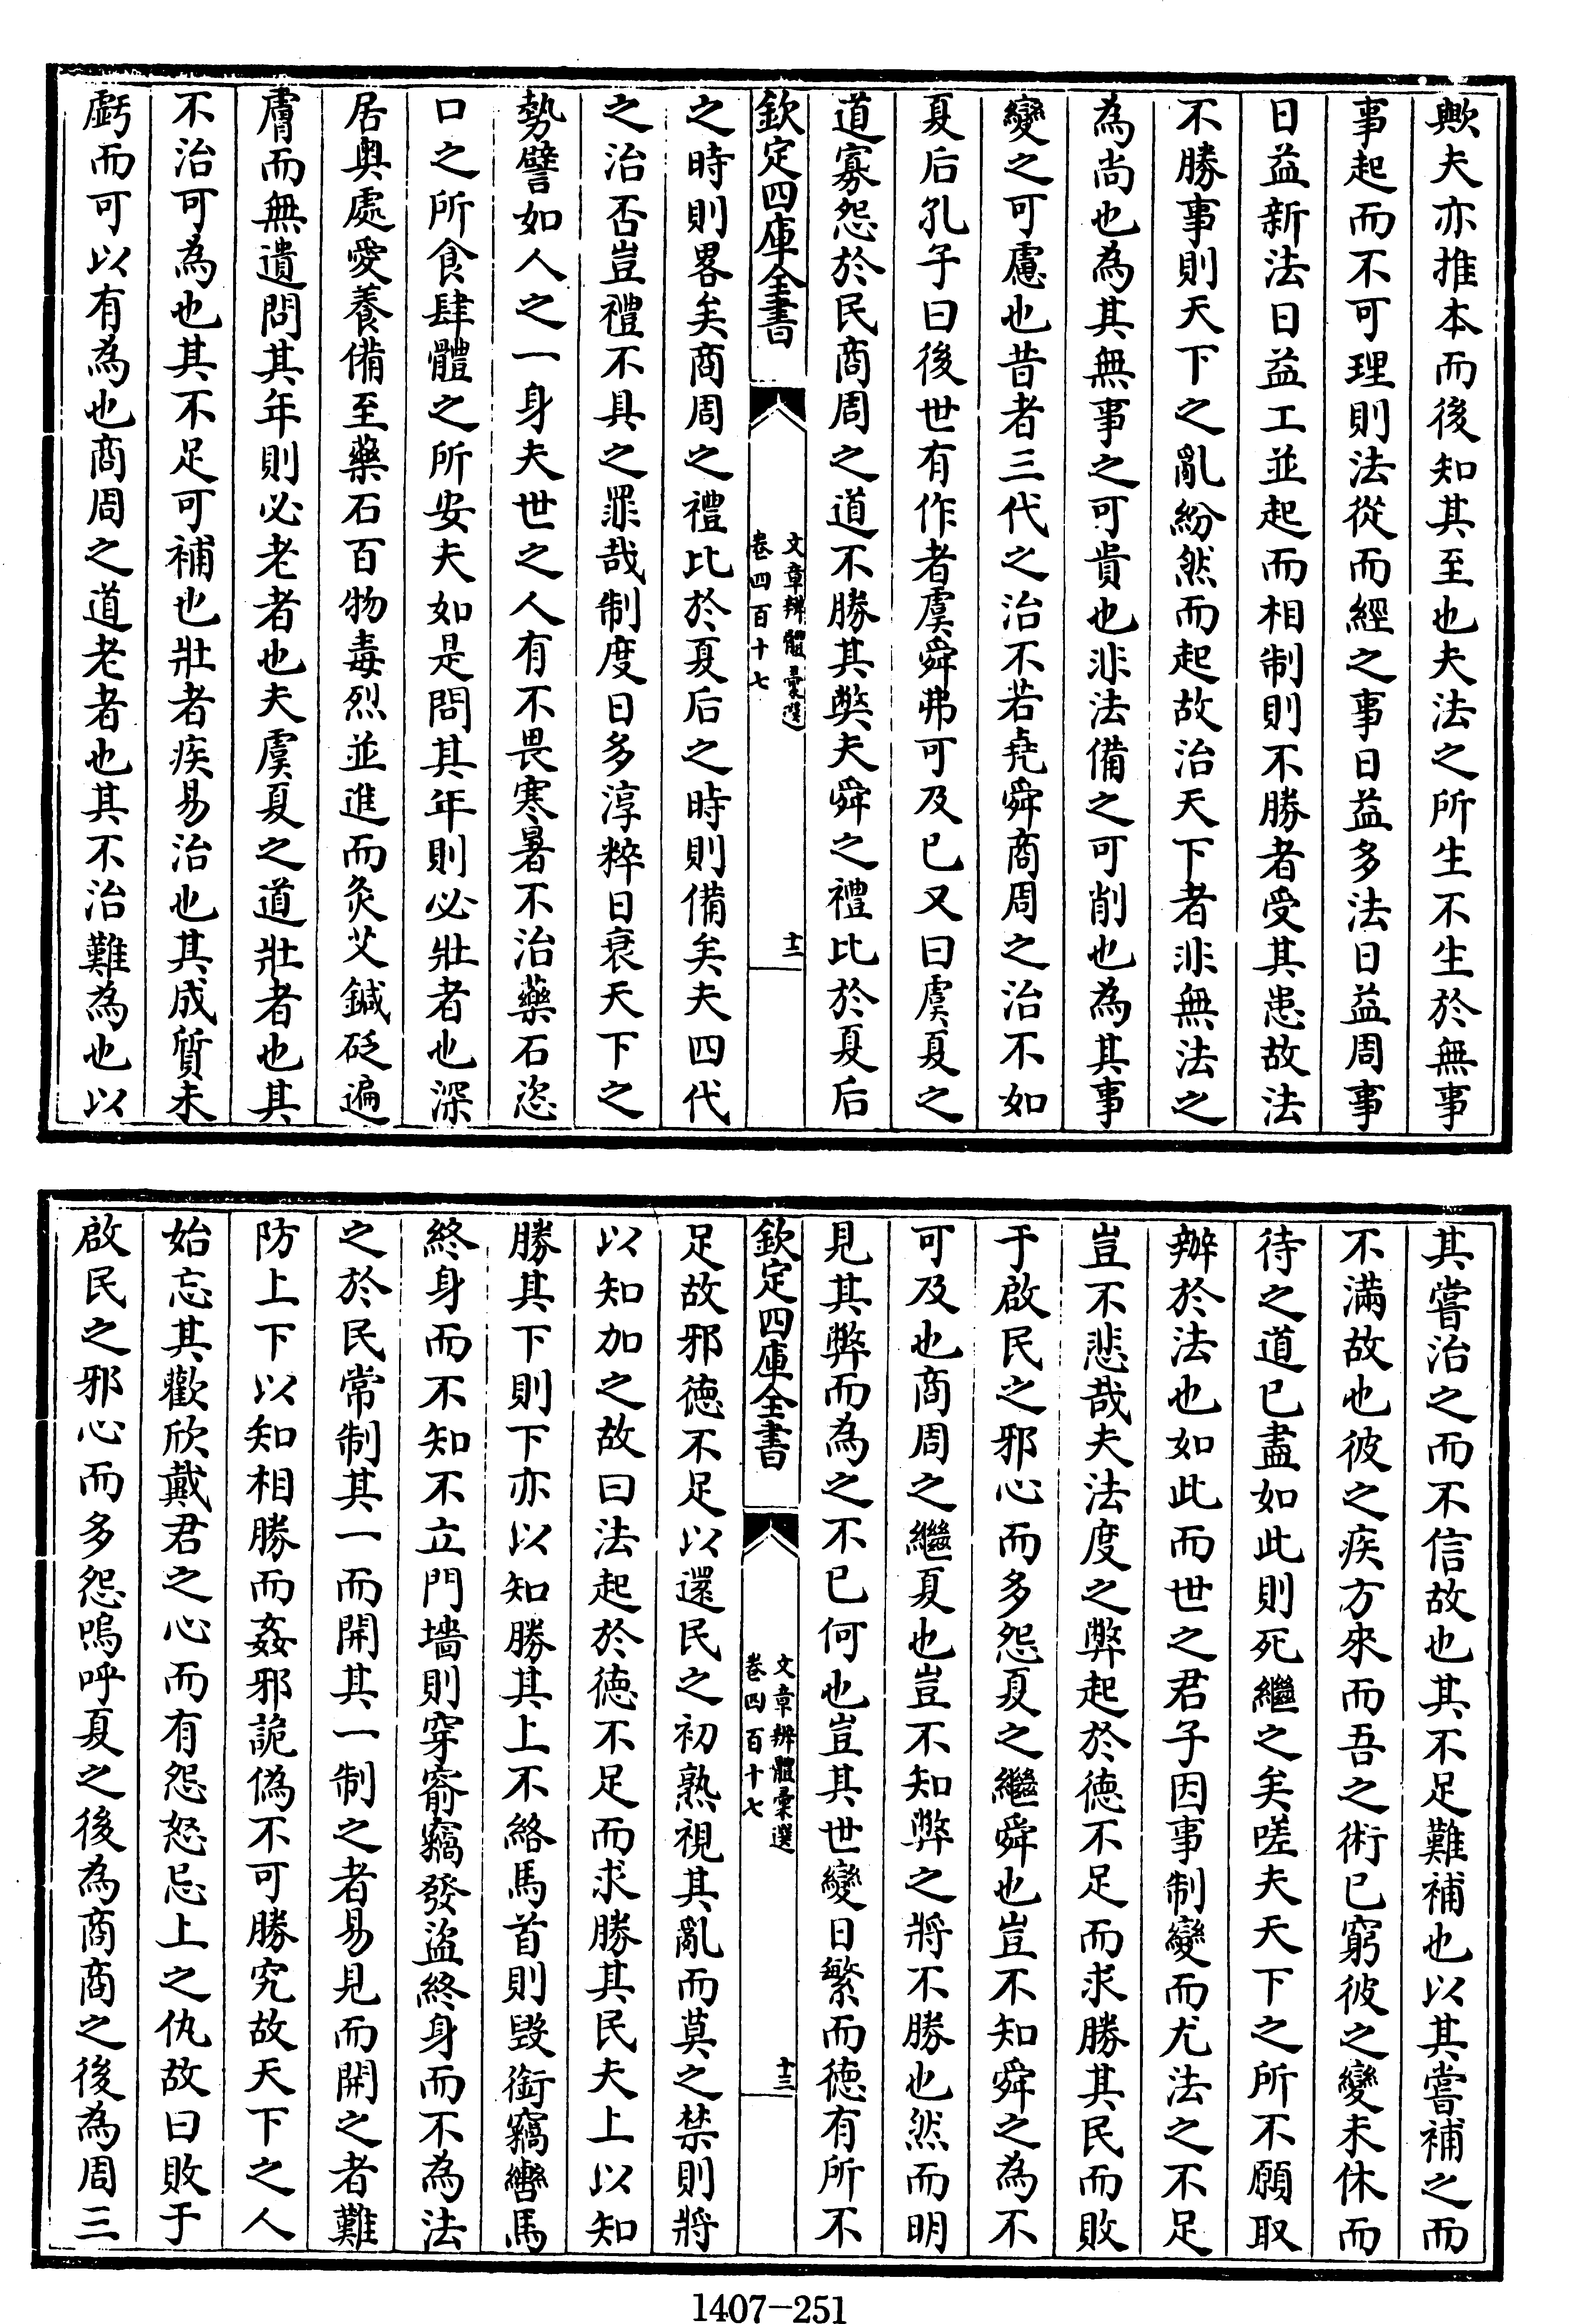 歟夫亦推本而後知其至也夫法之所生不生於無事
事起而不可理則法從而經之事日益多法日益周事
日益新法日益工並起而相制則不勝者受其患故法
不勝事則天下之亂紛然而起故治天下者非無法之
為尚也為其無事之可貴也非法備之可削也為其事
變之可慮也昔者三代之治不若堯舜商周之治不如
夏后孔子曰後世有作者虞舜弗可及已又曰虞夏之
道寡怨於民商周之道不勝其獘夫舜之禮比於夏后
欽定四庫全書
文章辨體彙選
卷四百十七
十二
之時則畧矣商周之禮比於夏后之時則備矣夫四代
之治否豈禮不具之罪哉制度日多淳粹日衰天下之
勢譬如人之一身夫世之人有不畏寒暑不治藥石恣
口之所食肆體之所安夫如是問其年則必壯者也深
居奥處愛養備至藥石百物毒烈並進而灸艾鍼砭遍
膚而無遺問其年則必老者也夫虞夏之道壯者也其
不治可為也其不足可補也壯者疾易治也其成質未
虧而可以有為也商周之道老者也其不治難為也以
其嘗治之而不信故也其不足難補也以其嘗補之而
不滿故也彼之疾方來而吾之術已窮彼之變未休而
待之道已盡如此則死繼之矣嗟夫天下之所不願取
辦於法也如此而世之君子因事制變而尤法之不足
豈不悲哉夫法度之弊起於徳不足而求勝其民而敗
于啟民之邪心而多怨夏之繼舜也豈不知舜之為不
可及也商周之繼夏也豈不知弊之將不勝也然而明
見其弊而為之不已何也豈其世變日繁而徳有所不
欽定四庫全書
文章辨體彙選
卷四百十七
十三
足故邪徳不足以還民之初熟視其亂而莫之禁則將
以知加之故曰法起於徳不足而求勝其民夫上以知
勝其下則下亦以知勝其上不絡馬首則毀銜竊轡馬
終身而不知不立門墻則穿窬竊發盜終身而不為法
之於民常制其一而開其一制之者易見而開之者難
防上下以知相勝而姦邪詭偽不可勝究故天下之人
始忘其歡欣戴君之心而有怨怒忌上之仇故曰敗于
啟民之邪心而多怨嗚呼夏之後為商商之後為周三
1407-251